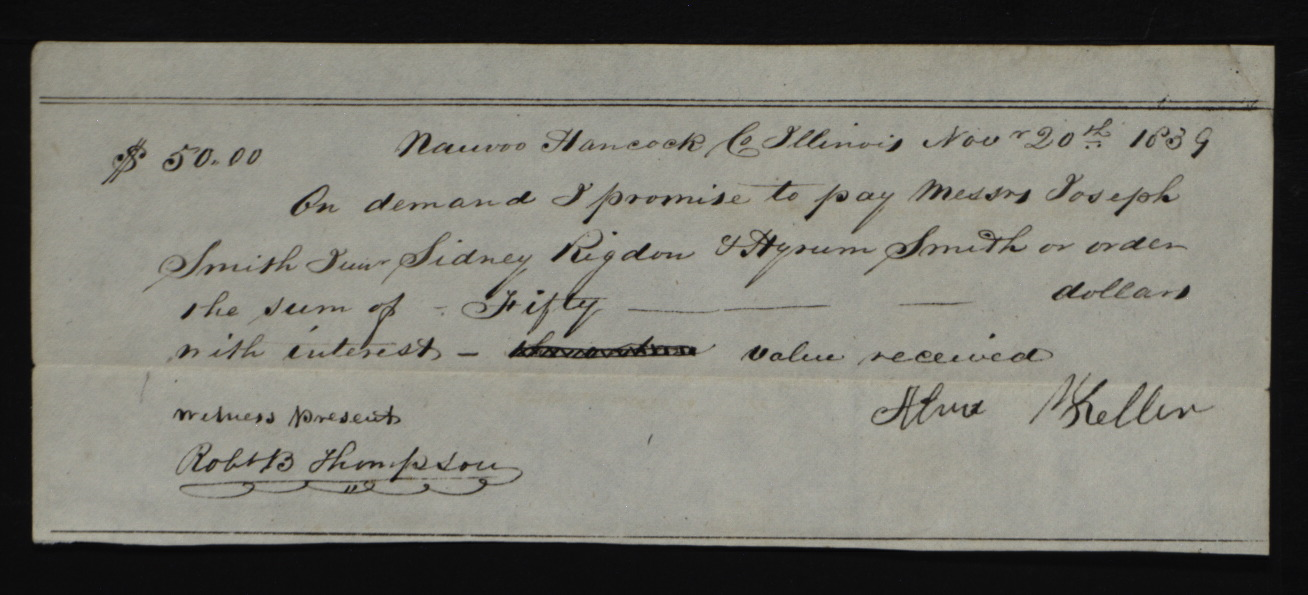 $ 50.00 Nauvoo Hancock Co Illinois Novr 20th 1839
On demand I promise to pay Messrs Joseph
Smith Junr Sidney Rigdon & Hyrum Smith or order
the sum of - Fifty dollars
with interest - value received
witness present Alva Keller
Robt B Thompson